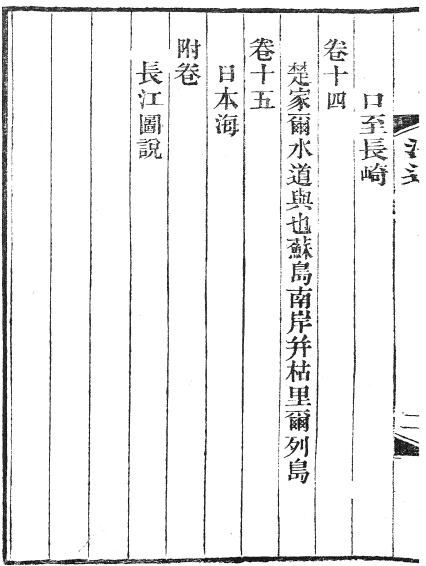 口至長崎
卷十四
楚家爾水道與也蘇島南岸并枯里爾列島
卷十五
日本海
附卷
長江圖說
二